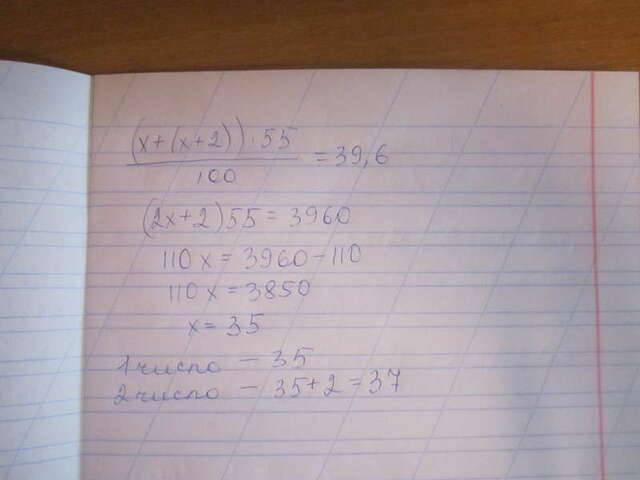 (x+(x+2))·55
100
=39,6
(2x+2)55=3960
110x=3960-110
110x=3850
x=35
1 число - 35
2 число - 35+2=37